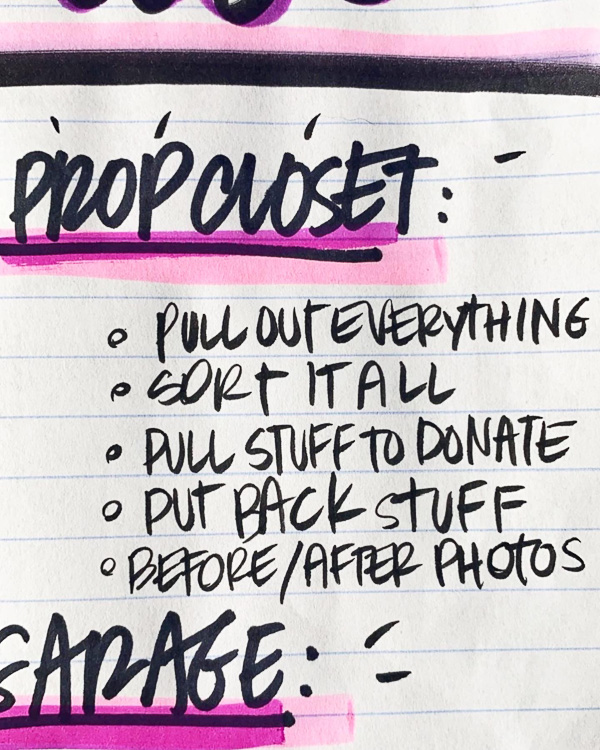 PROP CLOSET: -
• PULL OUT EVERYTHING
• SORT IT ALL
• PULL STUFF TO DONATE
• PUT BACK STUFF
• BEFORE/AFTER PHOTOS
GARAGE: -